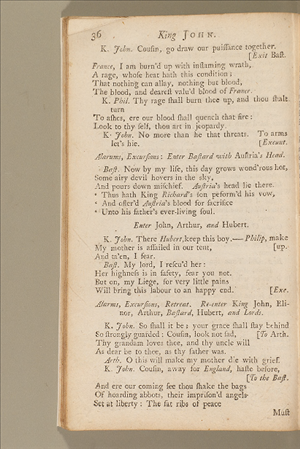 36 King JOHN.
K. John. Cousin, go draw our puissance together.
[Exit Bast.
France, I am burn'd up with inflaming wrath,
A rage, whose heat hath this condition;
That nothing can allay, nothing but blood,
The blood, and dearest valu'd blood of France.
K. Phil. Thy rage shall burn thee up, and thou shalt
turn
To ashes, ere our blood shall quench that fire:
Look to thy self, thou art in jeopardy.
K. John. No more than he that threats. To arms
let's hie. [Exeunt.
Alarums, Excursions: Enter Bastard with Austria's Head.
Bast. Now by my life, this day grows wond'rous hot,
Some airy devil hovers in the sky,
And pours down mischief. Austria's head lie there.
‘ Thus hath King Richard's son perform'd his vow,
‘ And offer'd Austria's blood for sacrifice
‘ Unto his father's ever-living soul.
Enter John, Arthur, and Hubert.
K. John. There Hubert, keep this boy.— Philip, make
My mother is assailed in our tent, [up.
And ta'en, I fear.
Bast. My lord, I rescu'd her:
Her highness is in safety, fear you not.
But on, my Liege, for very little pains
Will bring this labour to an happy end. [Exe.
Alarms, Excursions, Retreat. Re-enter King John, Eli-
nor, Arthur, Bastard, Hubert, and Lords.
K. John. So shall it be; your grace shall stay behind
So strongly guarded: Cousin, look not sad, [To Arth.
Thy grandam loves thee, and thy uncle will
As dear be to thee, as thy father was.
Arth. O this will make my mother die with grief.
K. John. Cousin, away for England, haste before,
[To the Bast.
And ere our coming see thou shake the bags
Of hoarding abbots, their imprison'd angels
Set at liberty: The fat ribs of peace
Must